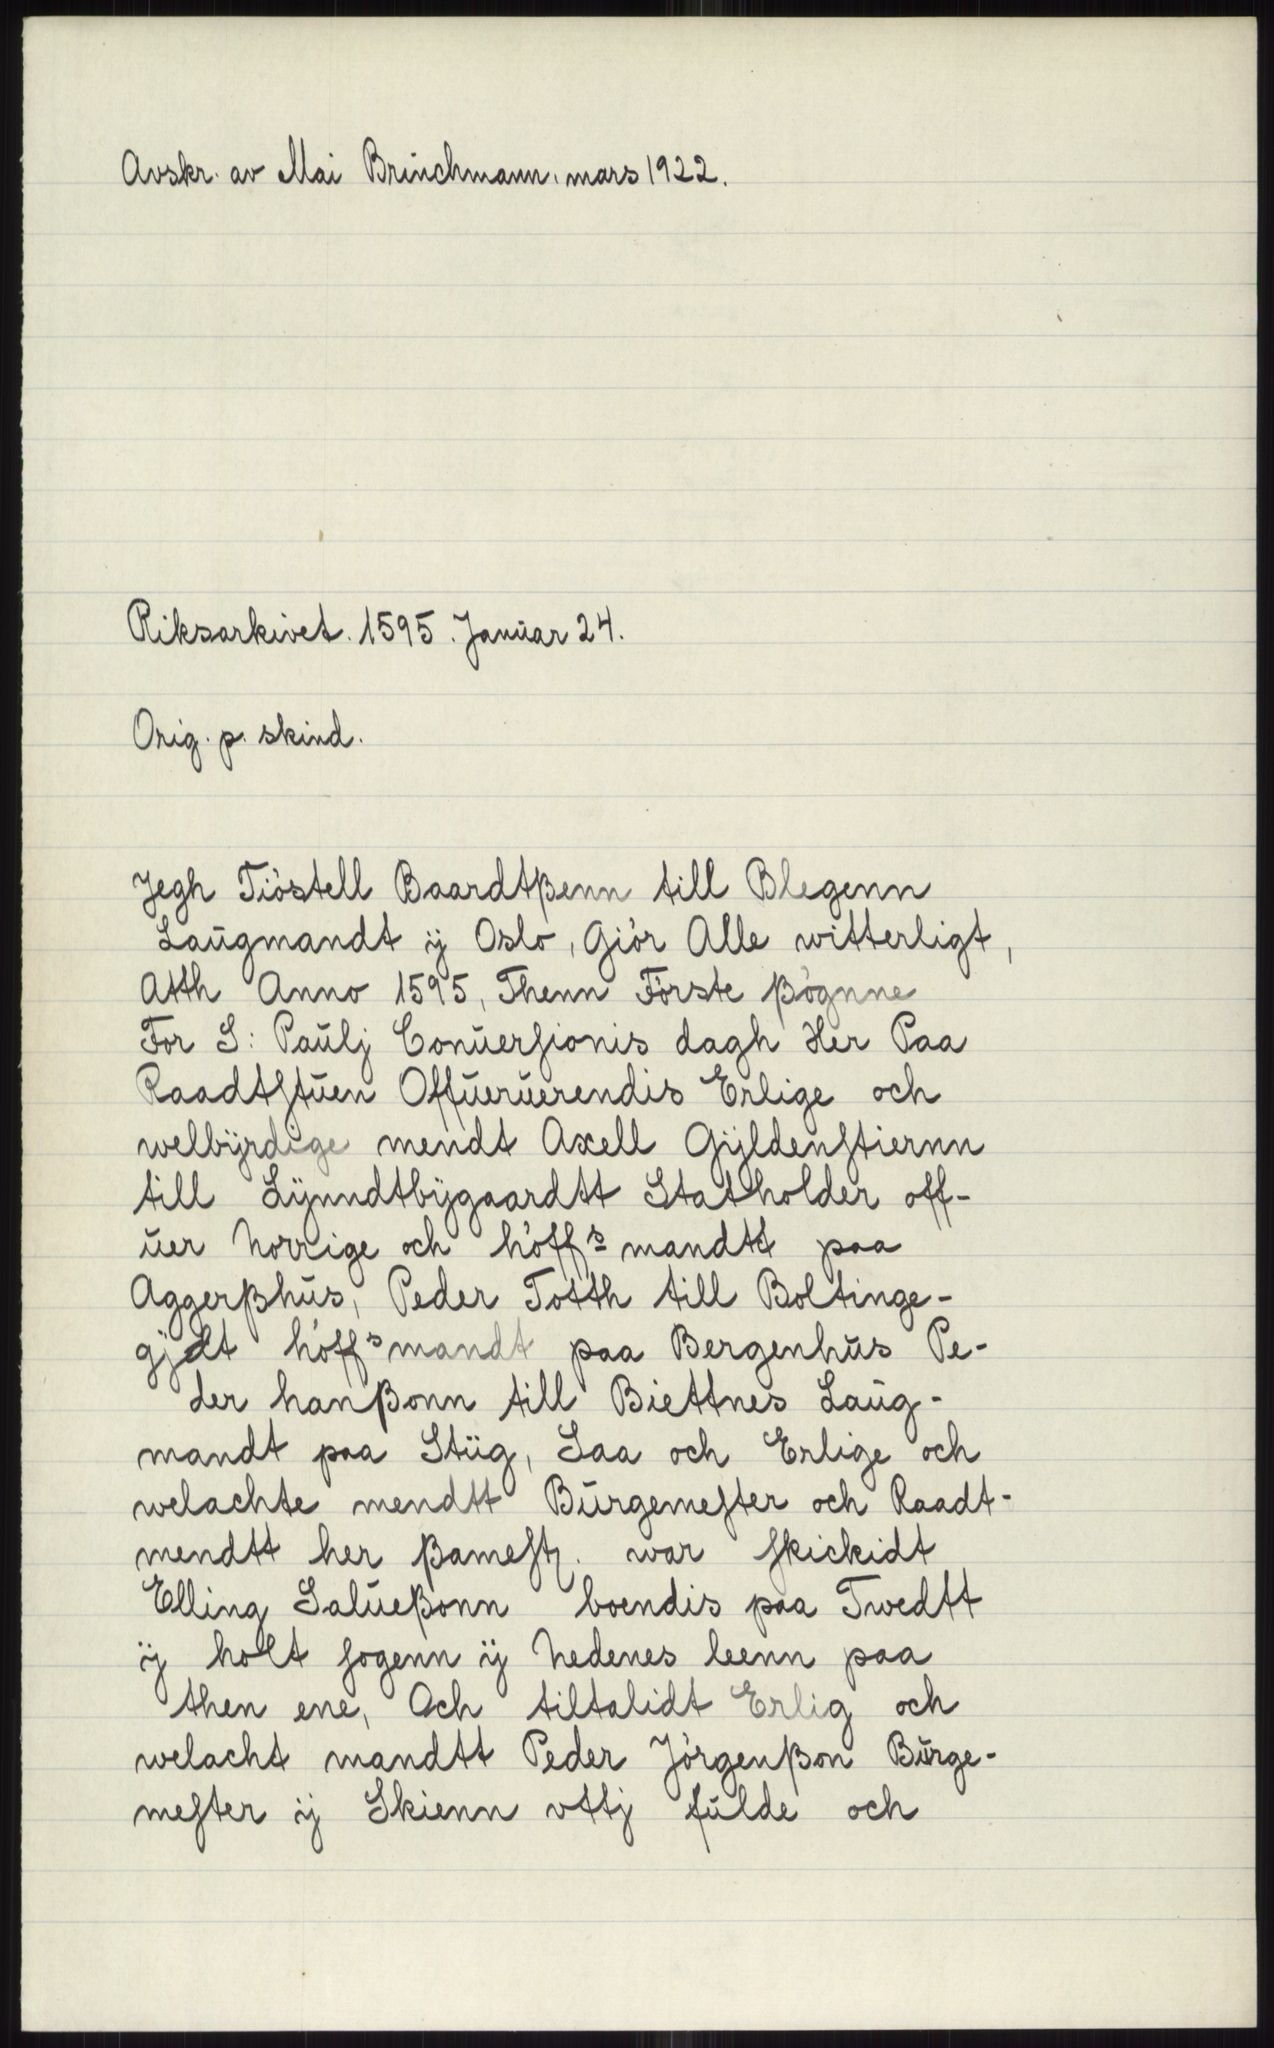 Avskr. av Mai Brinchmann. mars 1922.
Riksarkivet. 1595. Januar 24.
Orig. p. skind.
Jegh Tiöstell Baardtßenn till Blegenn
Laugmandt ÿ Oslo, Giör Alle witterligt,
Atth Anno 1595, Thenn Förste ßögnne
For S: Paulj Conuerſionis dagh Her Paa
Raadtſtuen Offueruerendis Erlige och
welbÿrdige mendt Axell Gÿldenſtiernn
till Lÿnndtbÿgaardtt Statholder off-
uer Norrige och höffs mandtt paa
Aggerßhus, Peder Totth till Boltinge-
gjdt höffsmandt paa Bergenhus Pe-
der hanßonn till Biettnes Laug-
mandt paa Stüg, Saa och Erlige och
welachte mendtt Burgemeſter och Raadt-
mendtt her ßameſtz. war ſkickidt
Elling Salueßonn boendis paa Twedtt
ÿ holt ſogenn ÿ Nedenes leenn paa
then ene, Och tiltalidt Erlig och
welacht mandtt Peder Jörgenßon Burge-
meſter ÿ Skienn vttj fulde och